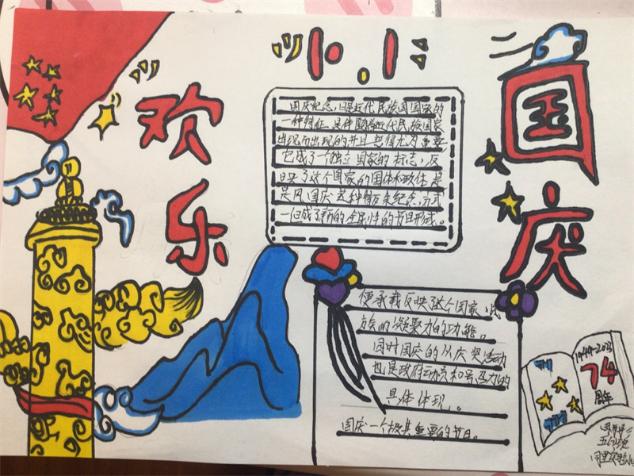 欢乐
10.1
国庆
国庆纪念日是近代民族国家的
一种特征,是伴随着近代民族国家
出现而出现的并且变得尤为重要
它成了一个独立国家的标志,反
映了这个国家的国体和政体
国庆这种特殊纪念方式
一旦成了新的全民性的节日形式。
便承载反映了这个国家、民
族的凝聚力的功能。
同时国庆的大庆典活动
也是政府动员和号召力的
具体体现。
国庆一个极其重要的节日。
1949-2023
74
周年